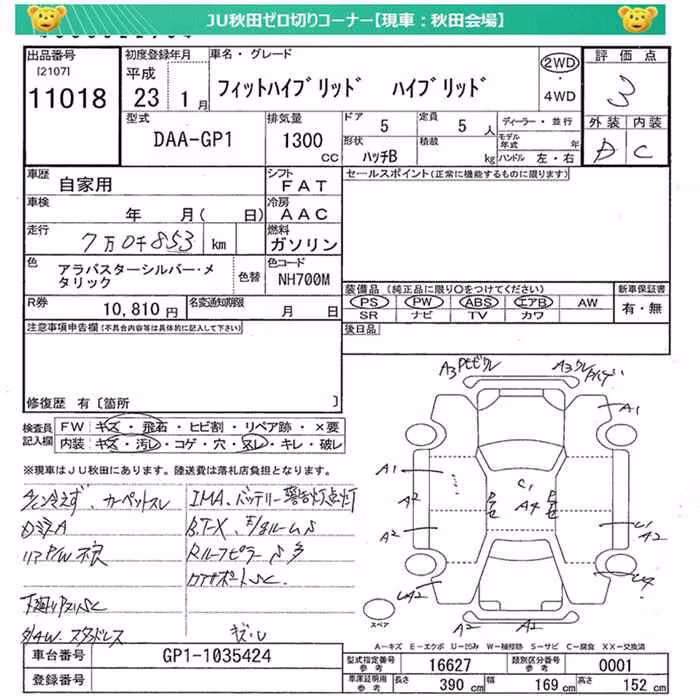 JU秋田ゼロ切りコーナー【現車：秋田会場】
出品番号 初度登録年月 車名・グレード 評価点
[2107]
11018
平成 23 1月
フィットハイブリッド ハイブリッド
2WD
・
4WD
3
型式 排気量 ドア 定員 ディーラー・並行 外装 内装
DAA-GP1 1300 CC 5 5 人
モデル年式 年
形状 ハッチB 積載 kg ハンドル 左・右
D C
車歴 自家用 シフト FAT セールスポイント(正常に機能するものに限ります)
車検 年 月( 日) 冷房 AAC
走行 7万0千853 km 燃料 ガソリン
色 アラバスターシルバー・メタリック 色替 色コード NH700M
装備品 (純正品に限り○をつけてください) 新車保証書
PS PW ABS エアB AW
SR ナビ TV カワ
有・無
R券 10,810 円 名変通知期限 月 日
後日品
注意事項申告欄(不具合内容等は具体的に記入して下さい)
修復歴 有 [箇所 ]
検査員記入欄
FW キズ・飛石・ヒビ割・リペア跡・×要
内装 キズ・汚レ・コゲ・穴・スレ・キレ・破レ
※現車はJU秋田にあります。陸送費は落札店負担となります。
冷えず、カーペットスレ
IMA、バッテリー警告灯点灯
リアP/W不良
スタッドレス
A3
A3
A1
A1
A2
A2
C1
A4
U1
A2
A2
A2
スペア
A-キズ E-エクボ U-凹み W-補修跡 S-サビ C-腐食 XX-交換済
車台番号 GP1-1035424
登録番号
型式指定番号 参考 16627 類別区分番号 参考 0001
車庫証明用 参考 長さ 390 cm 幅 169 cm 高さ 152 cm